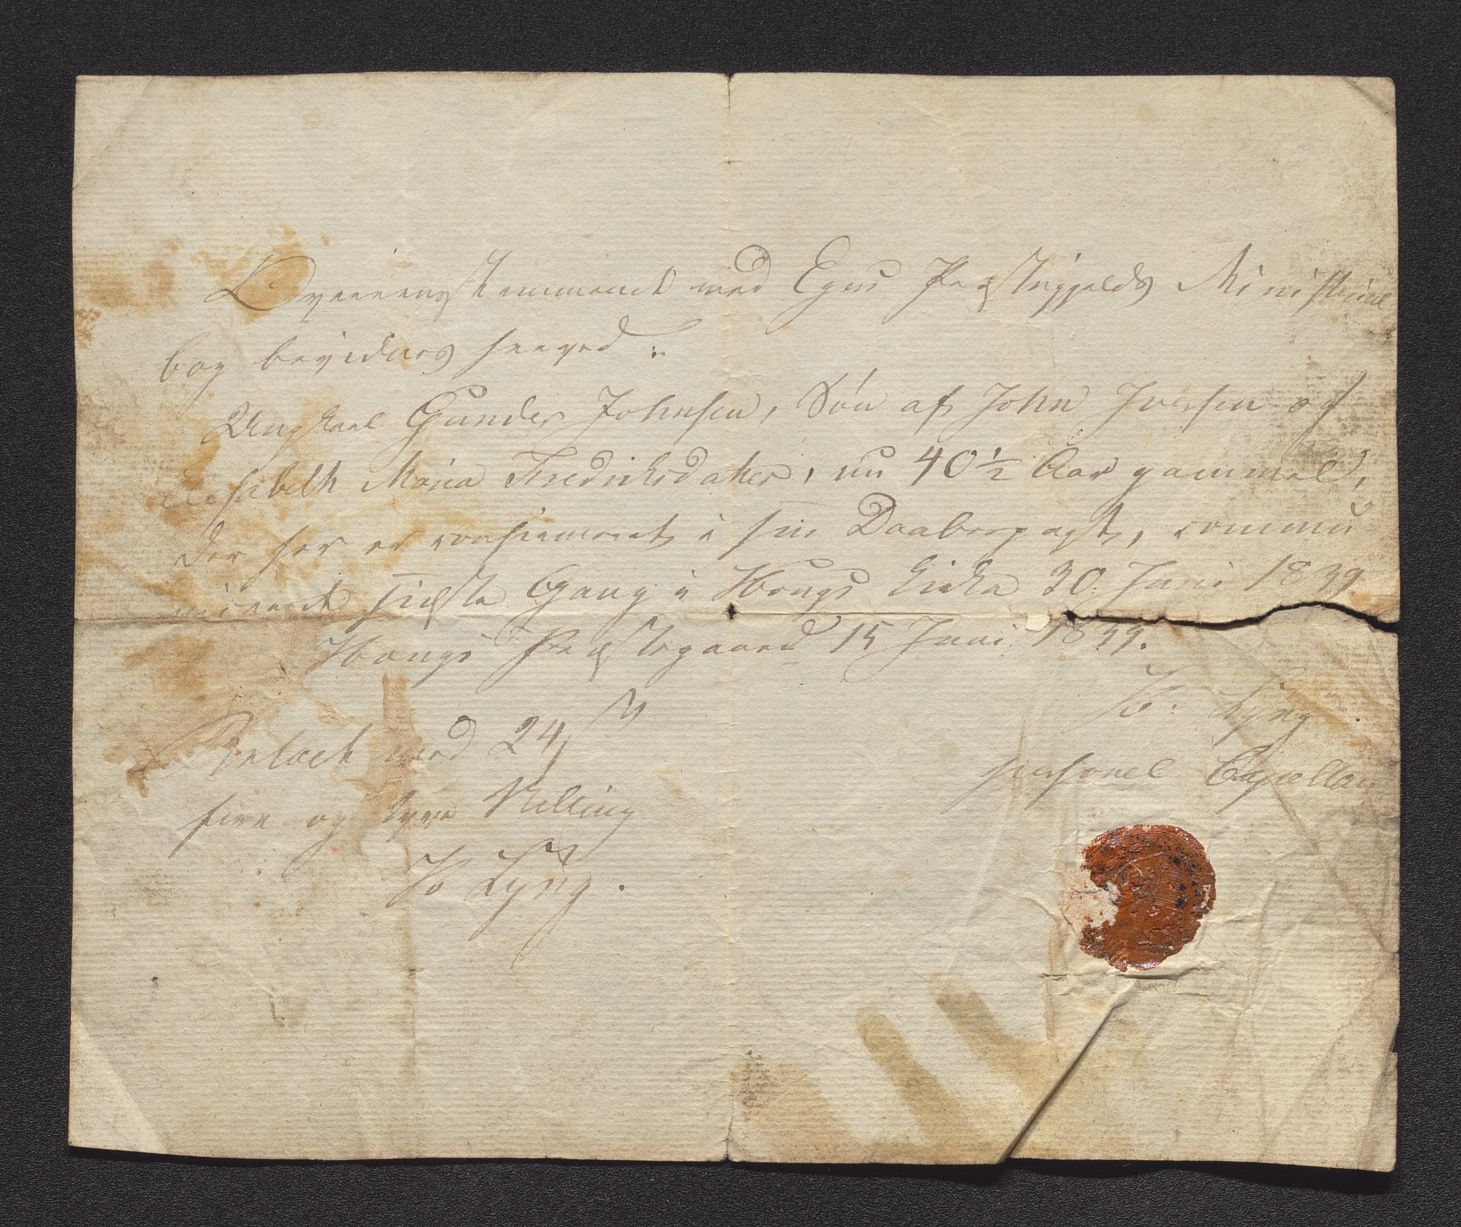 Overeensstemmende med Egns Præstegjelds Ministerial
bog bevidnes herved:
Ungkarl Gunder Johnsen, Søn af John Iversen og
Elisabeth Maria Fredriksdatter, nu 40 1/2 Aar gammel,
der her er confirmeret i sin Daabespagt, commu
nicerede sidste Gang i Kirke 30. Juni 1839
Præstegaard 15 Juni
Lyng
personel Capellan
Betalt med 24
fire og tyve Skilling
Lyng.